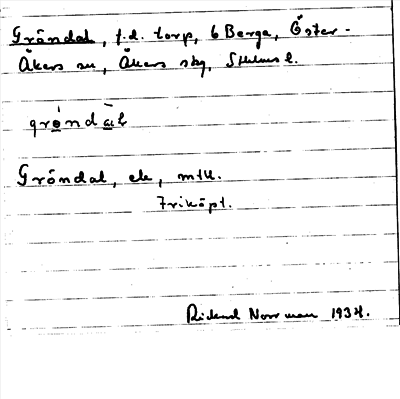 Gröndal, f.d. torp, 6 Berga, Öster-
Åkers sn, Åkers skg, Sthlms l.
gröndal
Gröndal, ek, mtl.
Friköpt.
Rickard Norrman 1934.